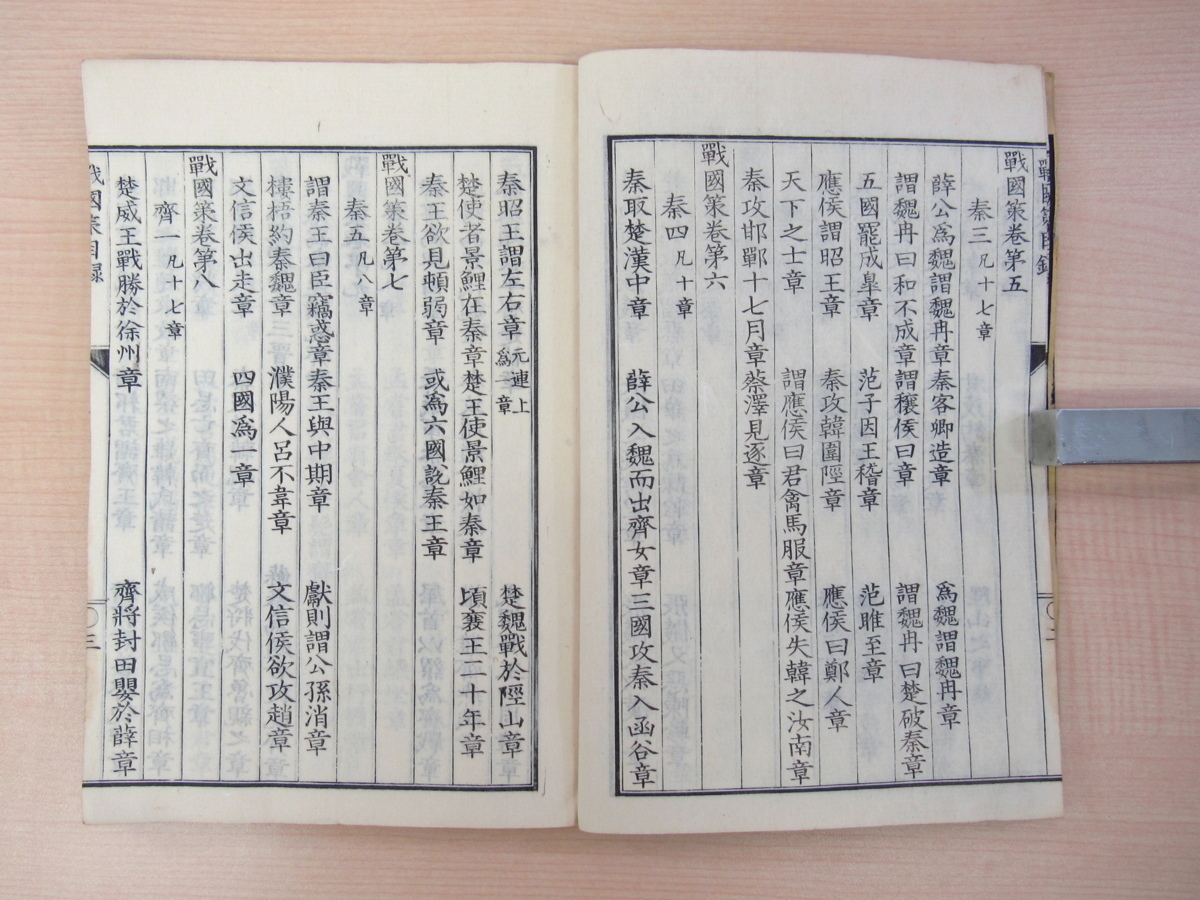 戰國策目錄
二
戰國策卷第五
秦三 凡十七章
薛公爲魏謂魏冉章 秦客卿造章 爲魏謂魏冉章
謂魏冉曰和不成章 謂穰侯曰章 謂魏冉曰楚破秦章
五國罷成臯章 范子因王稽章 范雎至章
應侯謂昭王章 秦攻韓圍陘章 應侯曰鄭人章
天下之士章 謂應侯曰君禽馬服章 應侯失韓之汝南章
秦攻邯鄲十七月章 蔡澤見逐章
戰國策卷第六
秦四 凡十章
秦取楚漢中章 薛公入魏而出齊女章 三國攻秦入函谷章
秦昭王謂左右章 元連上爲一章 楚魏戰於陘山章
楚使者景鯉在秦章 楚王使景鯉如秦章 頃襄王二十年章
秦王欲見頓弱章 或爲六國說秦王章
戰國策卷第七
秦五 凡八章
謂秦王曰臣竊惑章 秦王與中期章 獻則謂公孫消章
樓梧約秦魏章 濮陽人呂不韋章 文信侯欲攻趙章
文信侯出走章 四國爲一章
戰國策卷第八
齊一 凡十七章
楚威王戰勝於徐州章 齊將封田嬰於薛章
戰國策目錄
三